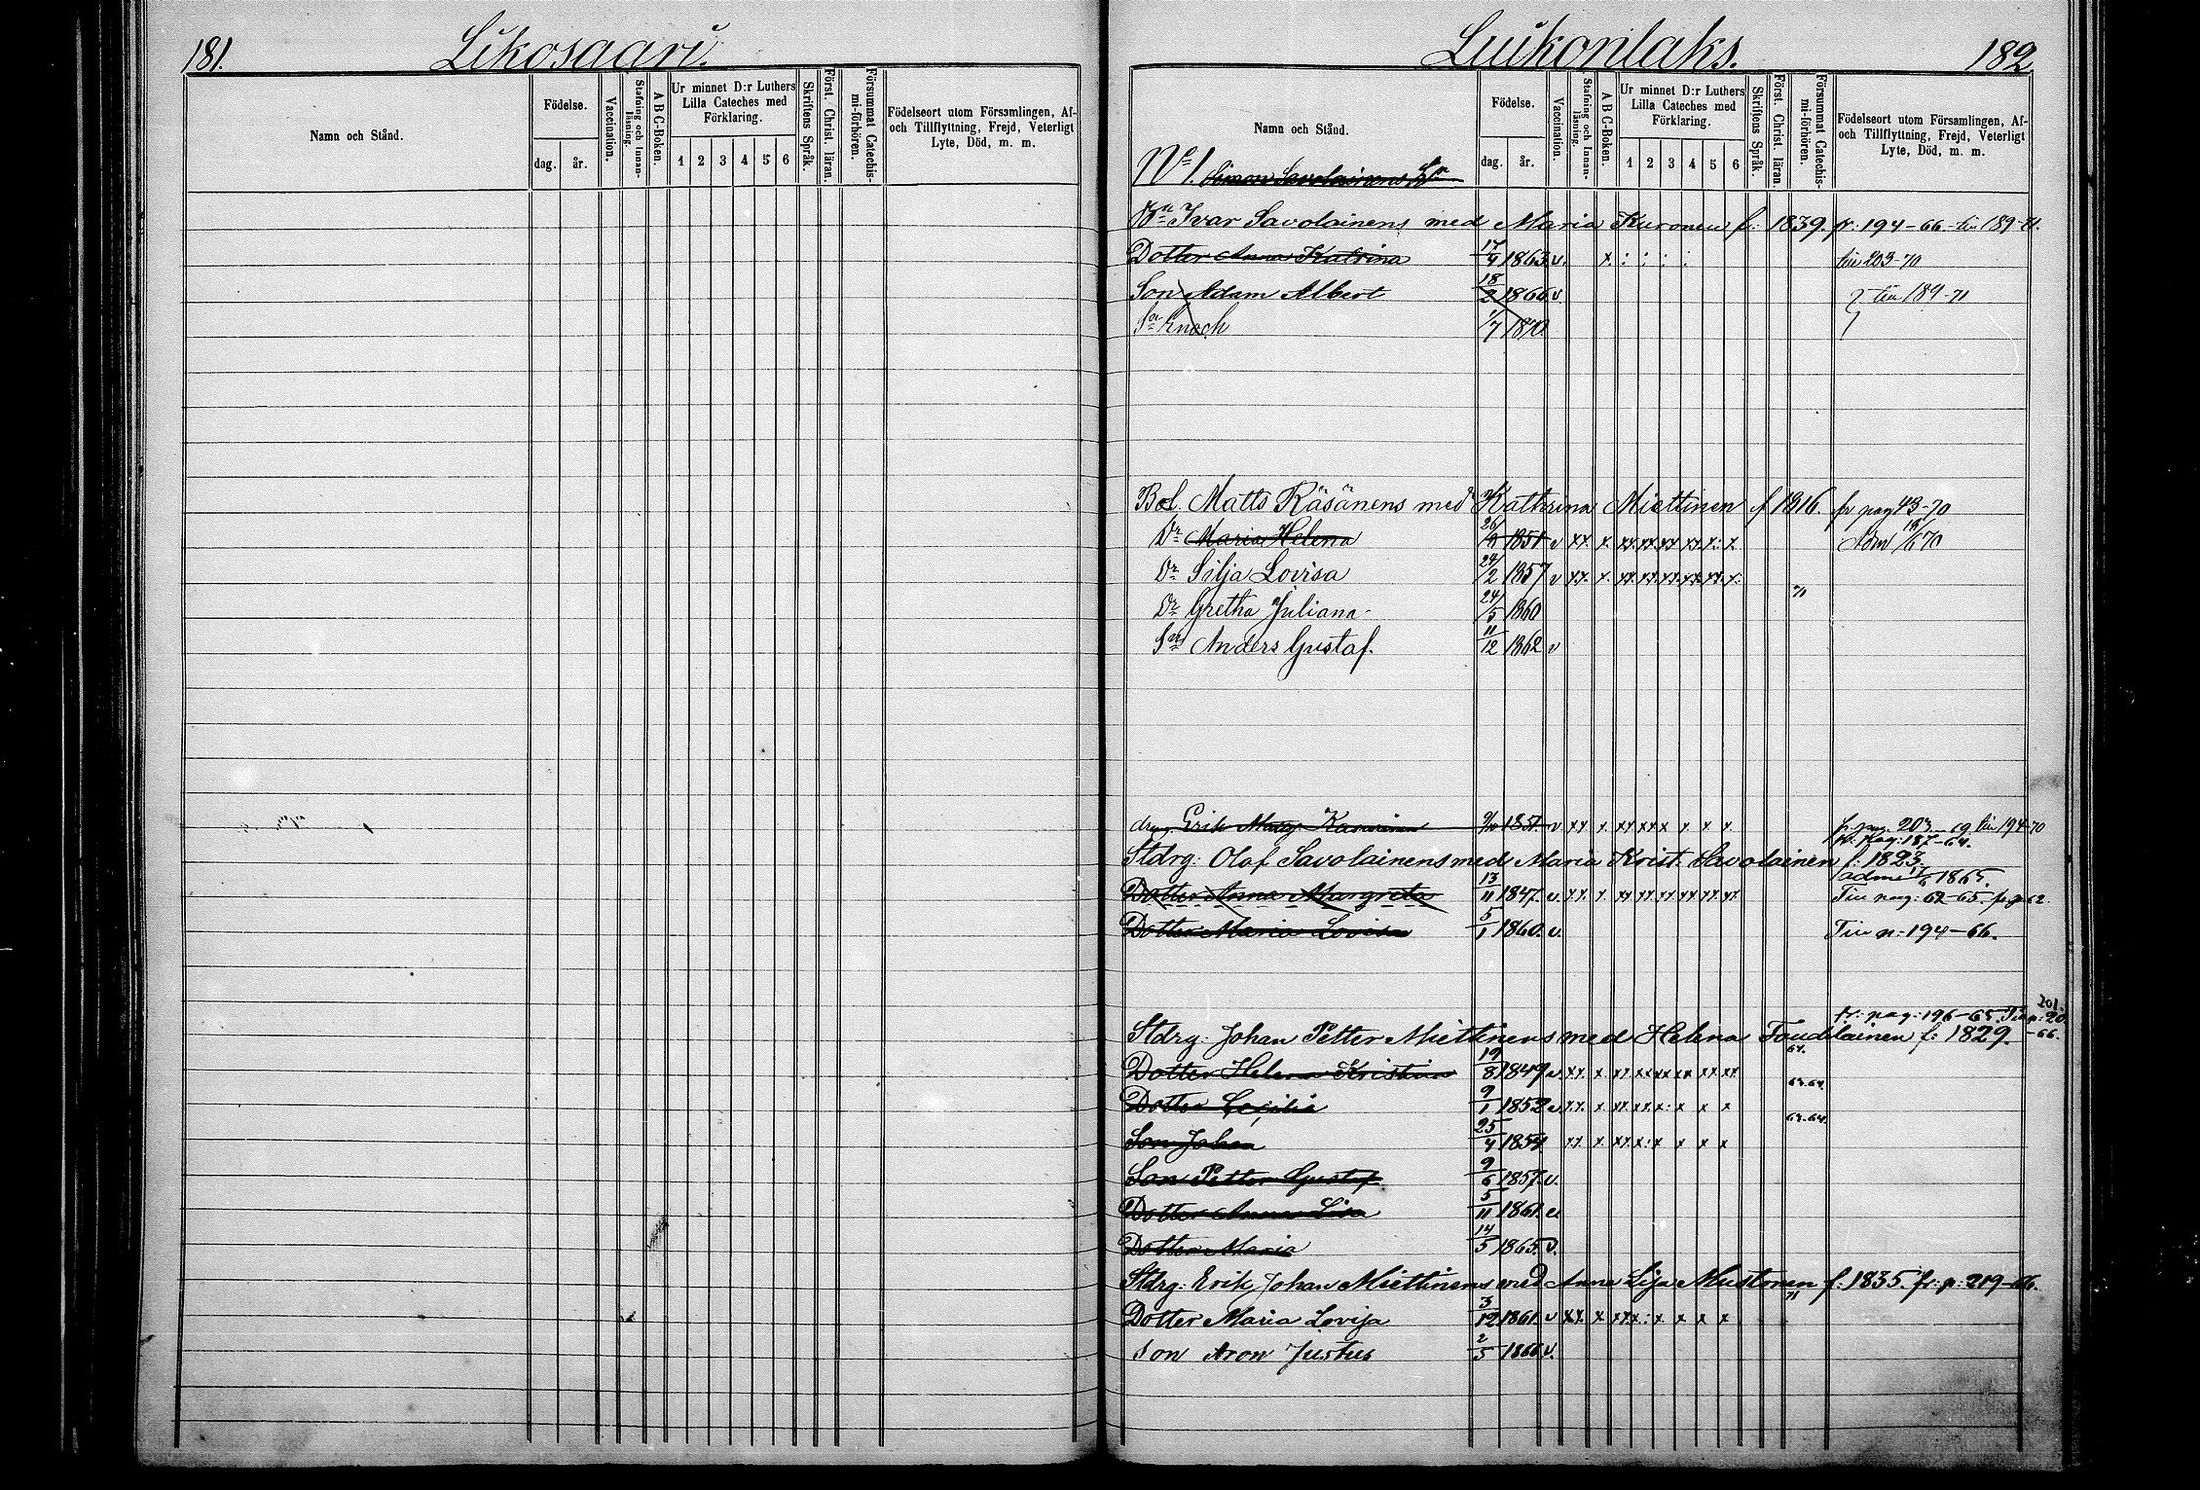 181.
Likosaari.
Namn och Stånd.
Födelse.
dag.
år.
Vaccination.
Stafning och Innan-läsning.
A B C-Boken.
Ur minnet D:r Luthers
Lilla Cateches med
Förklaring.
1 2 3 4 5 6
Skriftens Språk.
Först. Christ. läran.
Försummat Catechis-mi-förhören.
Födelseort utom Församlingen, Af-
och Tillflyttning, Frejd, Veterligt
Lyte, Död, m. m.
Luikonlaks.
182.
Namn och Stånd.
Födelse.
dag.
år.
Vaccination.
Stafning och Innan-läsning.
A B C-Boken.
Ur minnet D:r Luthers
Lilla Cateches med
Förklaring.
1 2 3 4 5 6
Skriftens Språk.
Först. Christ. läran.
Försummat Catechis-mi-förhören.
Födelseort utom Församlingen, Af-
och Tillflyttning, Frejd, Veterligt
Lyte, Död, m. m.
No 1. Simon Savolainens
Ivar Savolainens med Maria Kuronen f. 1839. fr: 194-66 - 189-71.
Dotter Anna Katrina 17/4 1863 v. x : : : : 203-70
Son Adam Albert 18/2 1866 v 189-71
Sn Enoch 1/7 1870
Matts Räsänens med Kathrina Miettinen f 1816. fr pag 43-70
Dr Maria Helena 26/ 1851 v xx x xx xx xx xx x: x
Dr Silja Lovisa 24/2 1857 v xx x xx xx xx xx xx x
Dr Gretha Juliana 24/5 1860
Sn Anders Gustaf. 11/12 1862 v
Erik 1851 v xx x xx xx x x x x fr pag. 203 194-70
fr: pag: 187-64.
Stdrg: Olof Savolainens med Maria Krist. Savolainen f: 1823.
1865.
Dotter Anna Margreta 13/11 1847. v. xx x xx xx xx xx xx xx pag: 62-65.
Dotter Maria Lovisa 5/1 1860. v. 194-66.
fr: pag: 196-65. 201
Stdrg: Johan Petter Miettinens med Helena Toudilainen f: 1829. -66.
Dotter Helena Kristina 19/8 1849 v xx x xx xx xx xx xx xx 64.
Dotter Cecilia 9/1 1852 v xx x xx xx x: x x x 63-64.
Son Johan 25/4 1854 xx x xx x: x x x x 63-64.
Son Petter Gustaf 9/6 1857 v.
Dotter Anna Lisa 5/11 1861 v
Dotter Maria 14/5 1865 v.
Stdrg: Erik Johan Miettinens med Anna Lisa Mustonen f. 1835. fr: p: 219-66.
Dotter Maria Lovisa 3/12 1861 v xx x xx x: x x x x 71
Son Aron Justus 2/5 1866 v.